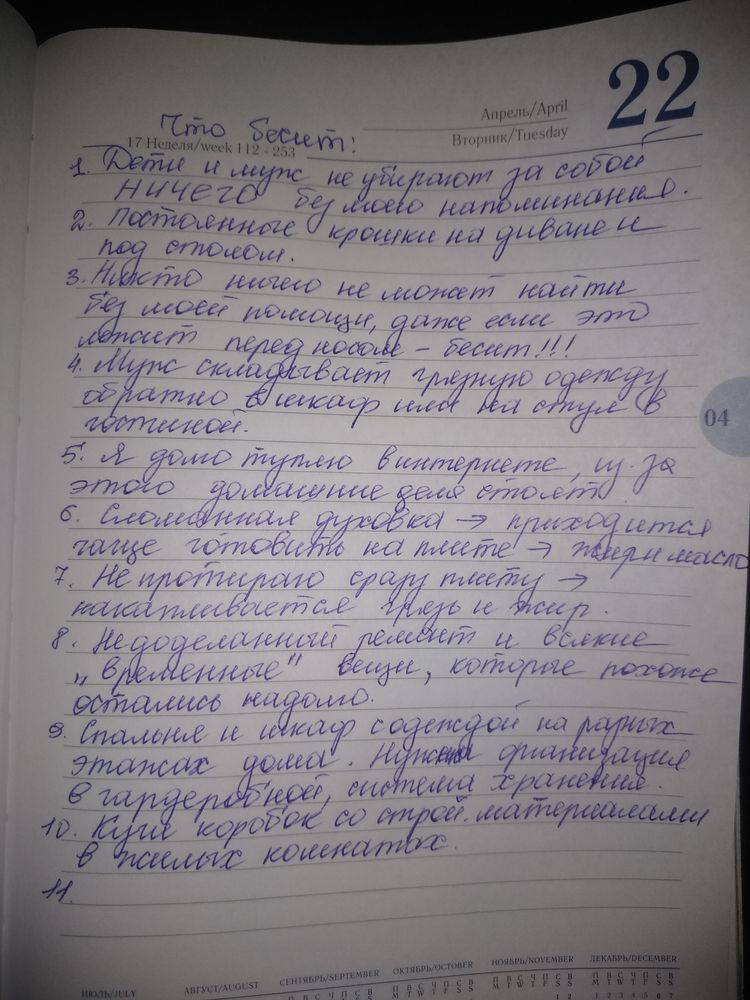 22
Апрель/April
Вторник/Tuesday
17 Неделя/week 112 - 253
Что бесит:
1. Дети и муж не убирают за собой
НИЧЕГО без моего напоминания.
2. Постоянные крошки на диване и
под столом.
3. Никто ничего не может найти
без моей помощи, даже если это
лежит перед носом – бесит!!!
4. Муж складывает грязную одежду
обратно в шкаф или на стул в
гостиной.
04
5. Я долго туплю в интернете, из-за
этого домашние дела стоят.
6. Сломанная духовка → приходится
чаще готовить на плите → жир и масло
7. Не протираю сразу плиту →
накапливается грязь и жир.
8. Недоделанный ремонт и всякие
„временные" вещи, которые похоже
остались надолго.
9. Спальня и шкаф с одеждой на разных
этажах дома. Нужна организация
в гардеробной, система хранения.
10. Куча коробок со строй. материалами
в жилых комнатах.
11.
ИЮЛЬ/JULY АВГУСТ/AUGUST СЕНТЯБРЬ/SEPTEMBER ОКТЯБРЬ/OCTOBER НОЯБРЬ/NOVEMBER ДЕКАБРЬ/DECEMBER